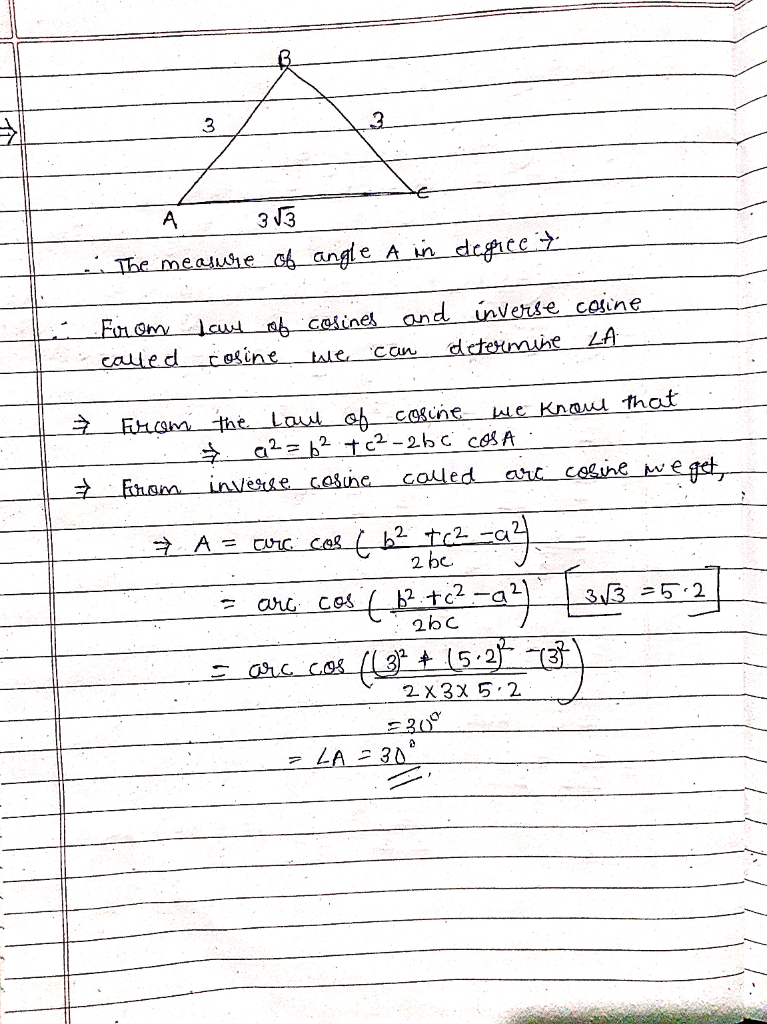 B
3 3
A C
3√3
∴ The measure of angle A in degree →
∴ From law of cosines and inverse cosine
called cosine we can determine ∠A
⇒ From the Law of cosine we know that
⇒ a² = b² + c² - 2bc cos A
⇒ From inverse cosine called arc cosine we get,
⇒ A = arc cos ( b² + c² - a² / 2bc )
= arc cos ( b² + c² - a² / 2bc ) [3√3 = 5.2]
= arc cos ( (3)² + (5.2)² - (3)² / 2 × 3 × 5.2 )
= 30°
= ∠A = 30°